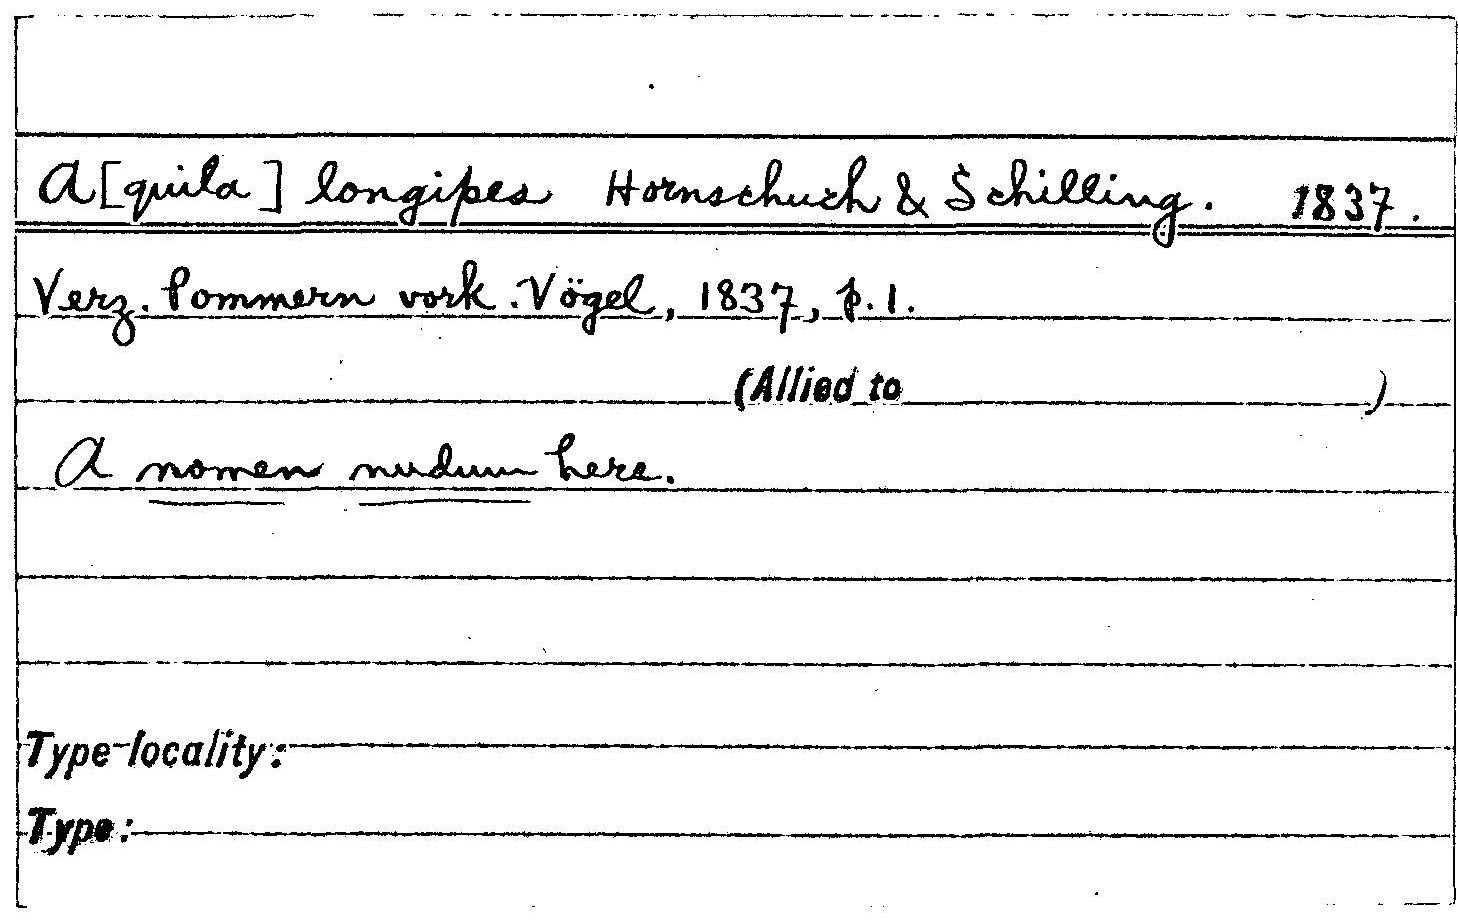 A[quila] longipes Hornschuch & Schilling. 1837.
Verz. Pommern vork. Vögel, 1837, p. 1.
(Allied to )
A nomen nudum here.
Type-locality:
Type: